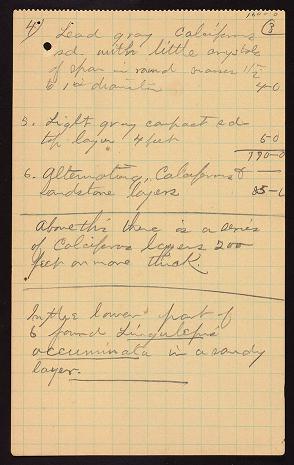 3
4. Lead gray Calciferous
sd. with little crystals
of spar in round masses 1/2
to 1 in diameter 4-0
5. Light gray compact sd
top layer 4 feet 5-0
190-0
6. Alternating Calciferous &
sandstone layers 25-0
Above this there is a series
of Calciferous layers 200
feet or more thick.
In the lower part of
6 found Lingulepis
accuminata in a sandy
layer.